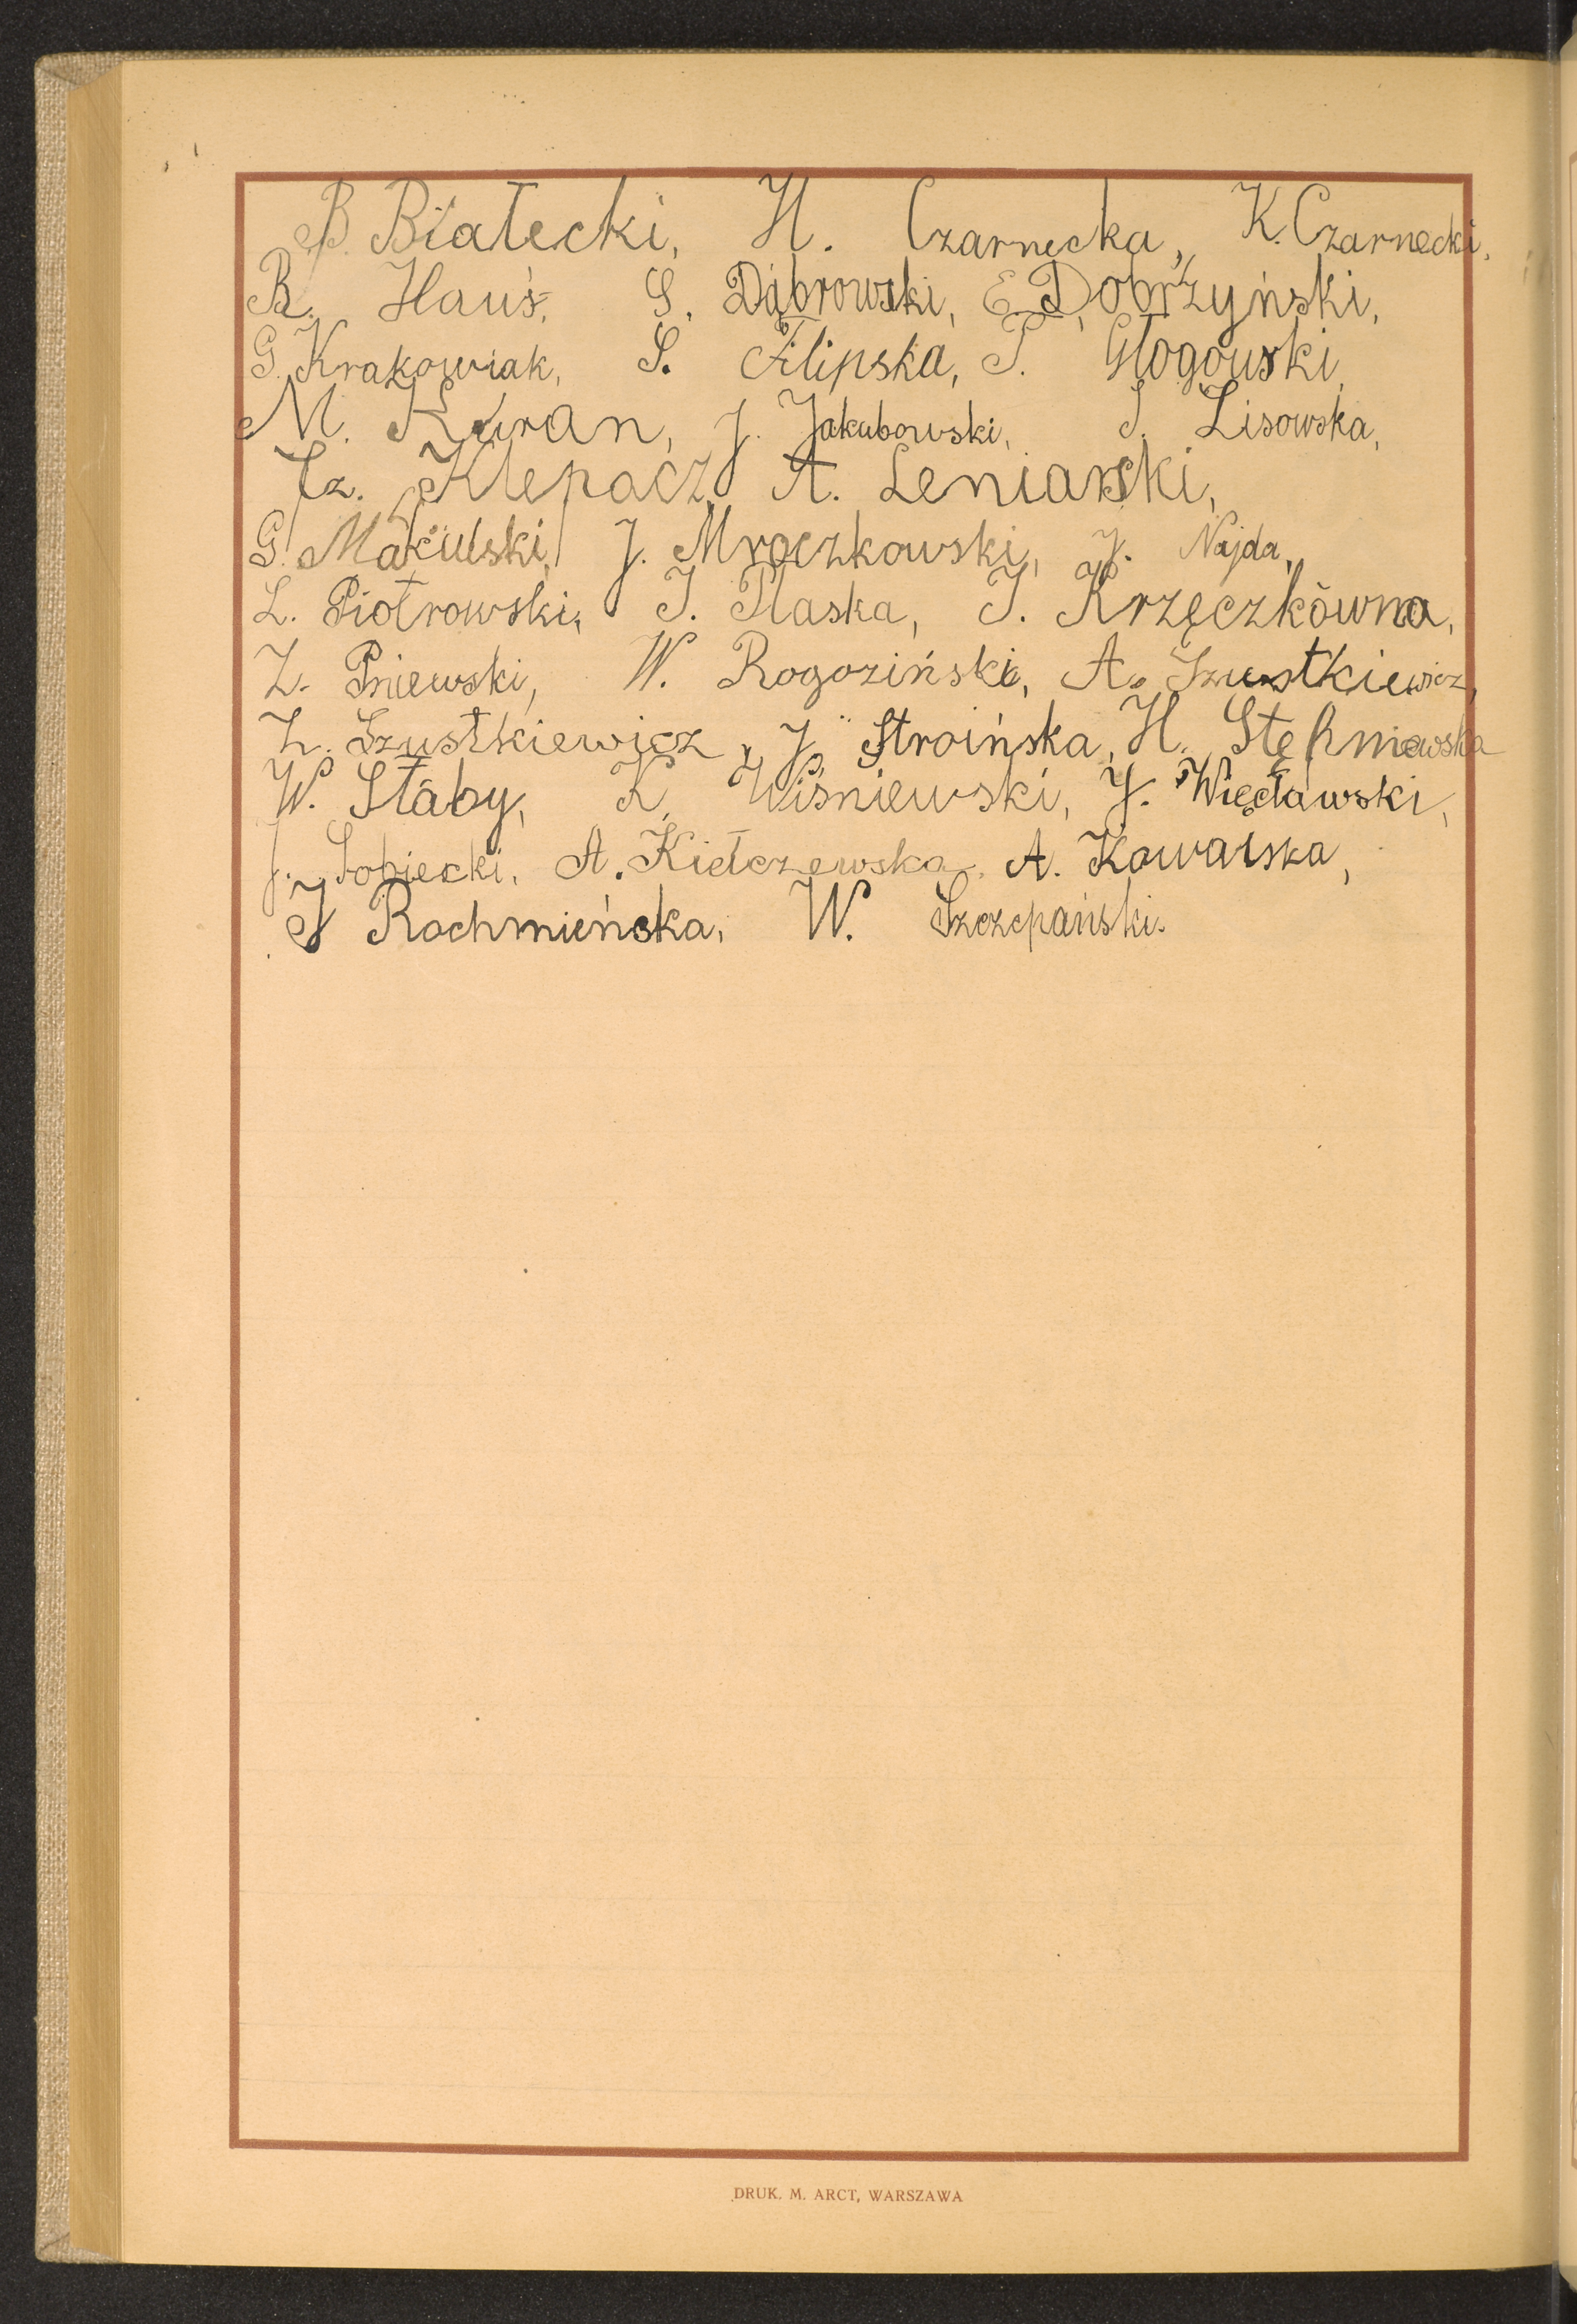 B. Białecki, H. Czarnecka, K. Czarnecki,
R. Hauś, S. Dąbrowski, E. Dobrzyński,
G. Krakowiak, S. Filipska, T. Głogowski,
M. Huran, J. Jakubowski, S. Lisowska,
Cz. Klepacz, A. Leniarski,
G. Makulski, J. Mroczkowski, J. Najda,
L. Piotrowski, I. Płaska, I. Krzęczkówna,
Z. Pniewski, W. Rogoziński, A. Szustkiewicz,
Z. Szustkiewicz, J. Stroińska, H. Stępniewska
W. Słaby, K. Wiśniewski, J. Więcławski,
J. Sobiecki, A. Kiełczewska, A. Kowalska,
J Rochmieńska, W. Szczepański.
DRUK. M. ARCT, WARSZAWA